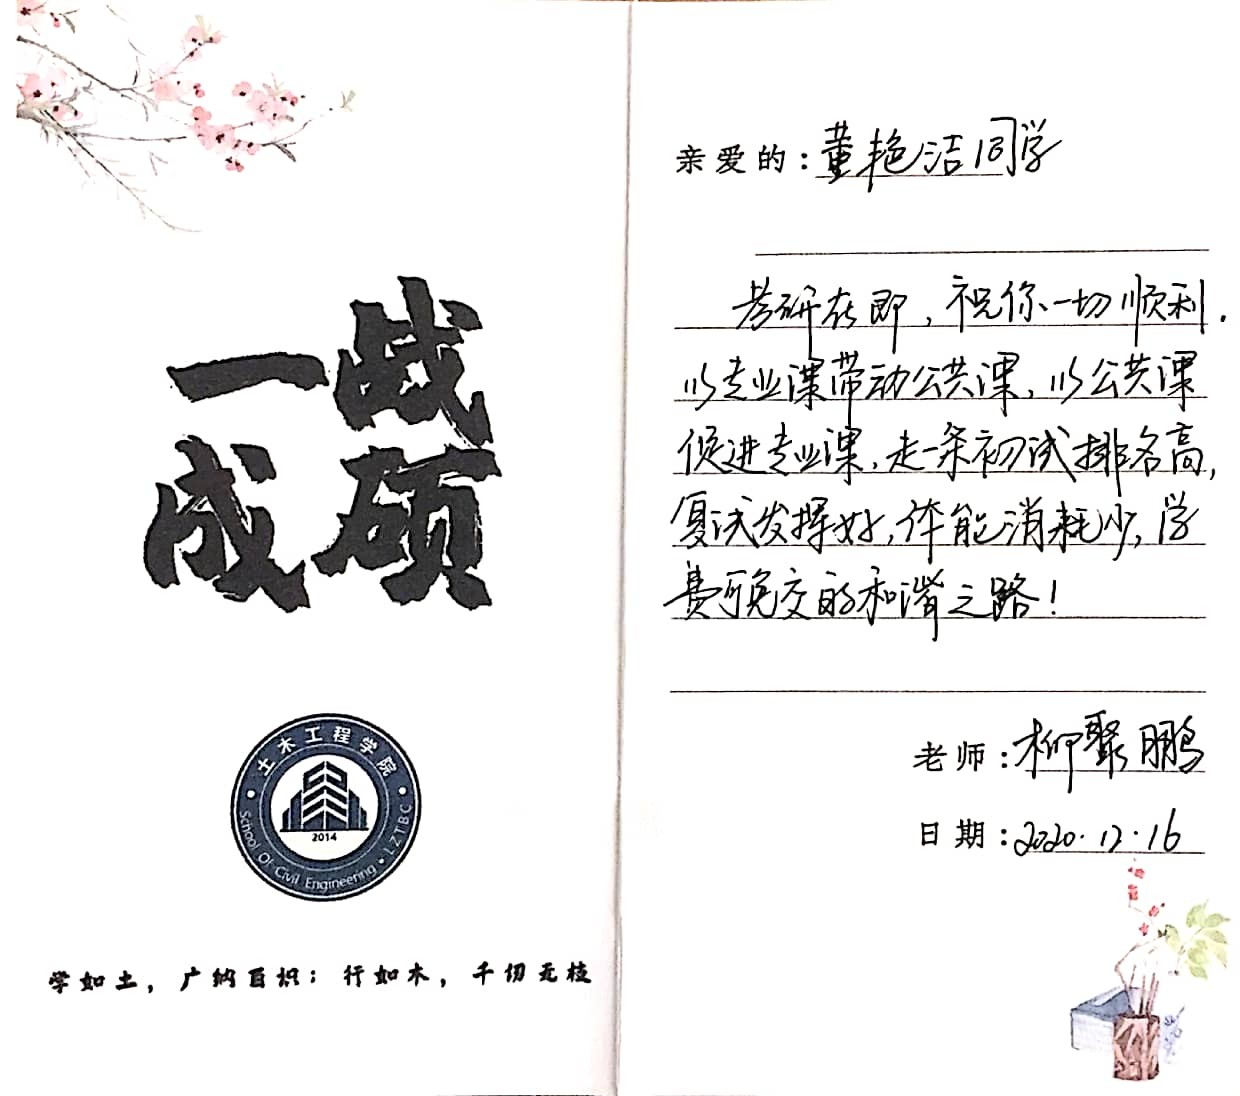 一战
成硕
土木工程学院
2014
School Of Civil Engineering · LZTBC
学如土，广纳百识；行如木，千仞无枝
亲爱的：董艳洁同学
考研在即，祝你一切顺利.
以专业课带动公共课，以公共课
促进专业课，走一条初试排名高，
复试发挥好，体能消耗少，学
费可免交的和谐之路！
老师：柳聚鹏
日期：2020.12.16